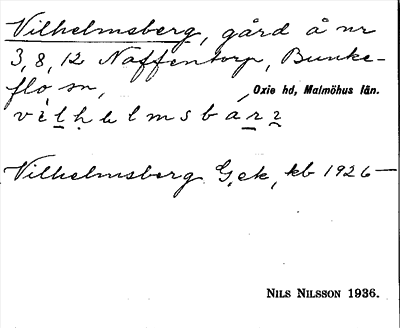 Vilhelmsberg, gård å nr
3, 8, 12 Naffentorp, Bunke-
flo sn, Oxie hd, Malmöhus län.
vilhelmsbárꝛ
Vilhelmsberg G.ek, kb 1926—
NILS NILSSON 1936.